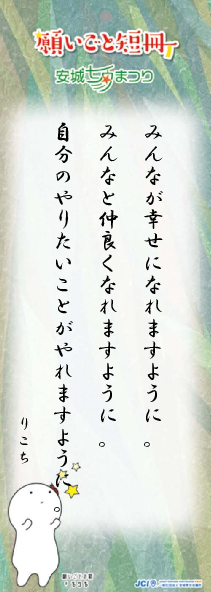 願いごと短冊
安城七夕まつり
みんなが幸せになれますように。
みんなと仲良くなれますように。
自分のやりたいことがやれますように
りこち
JCI